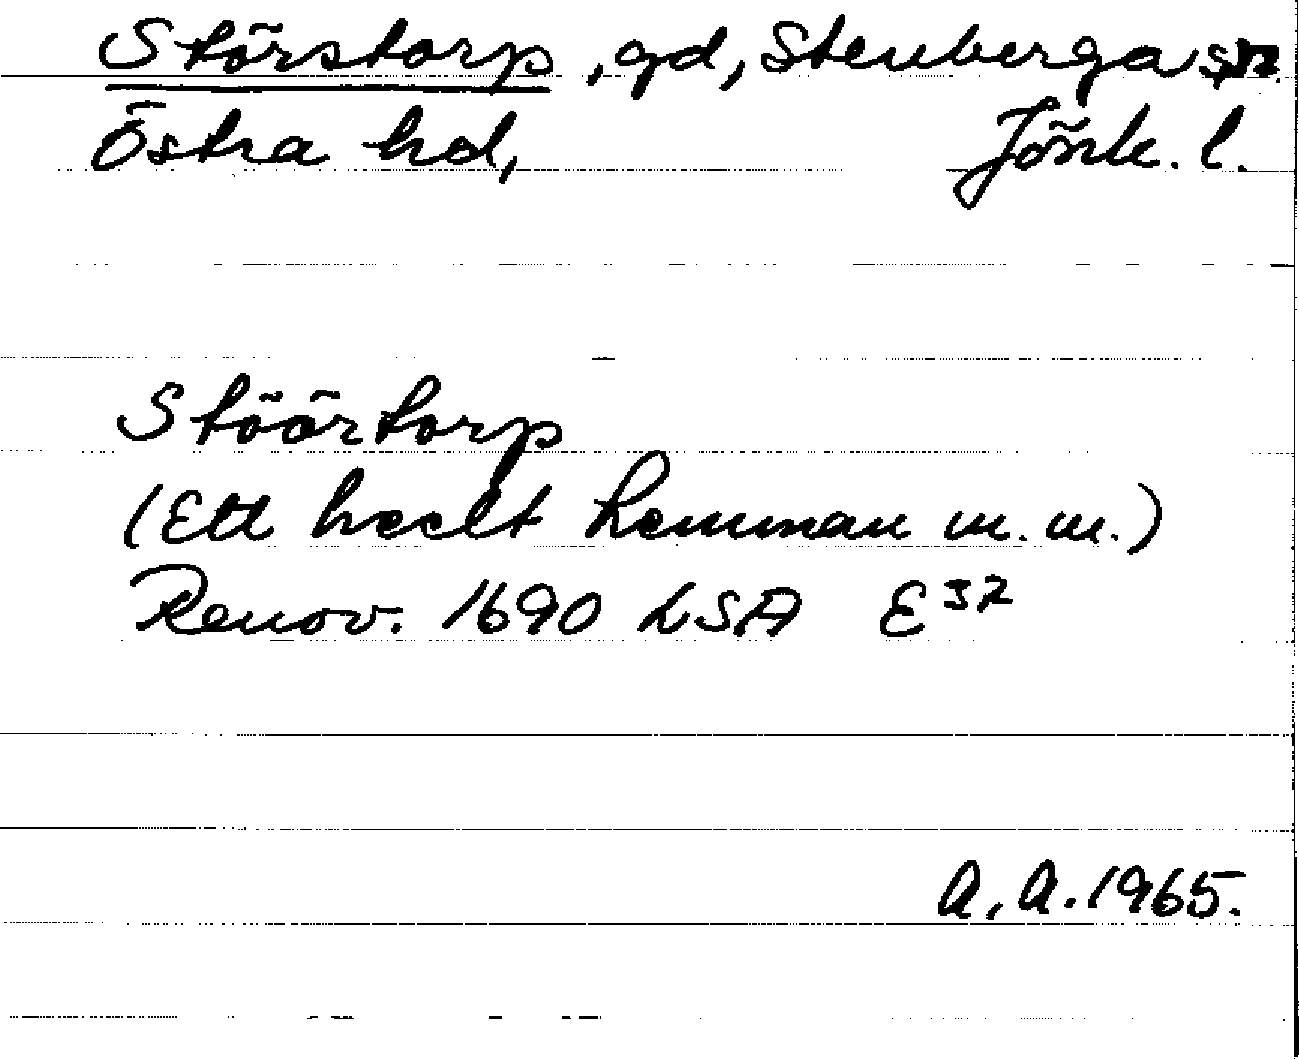 Störstorp, gd, Stenberga sn.
Östra hd, Jönk. l.
Stöörtorp
(Ett heelt hemman m.m.)
Renov. 1690 LSA E³²
A.A. 1965.